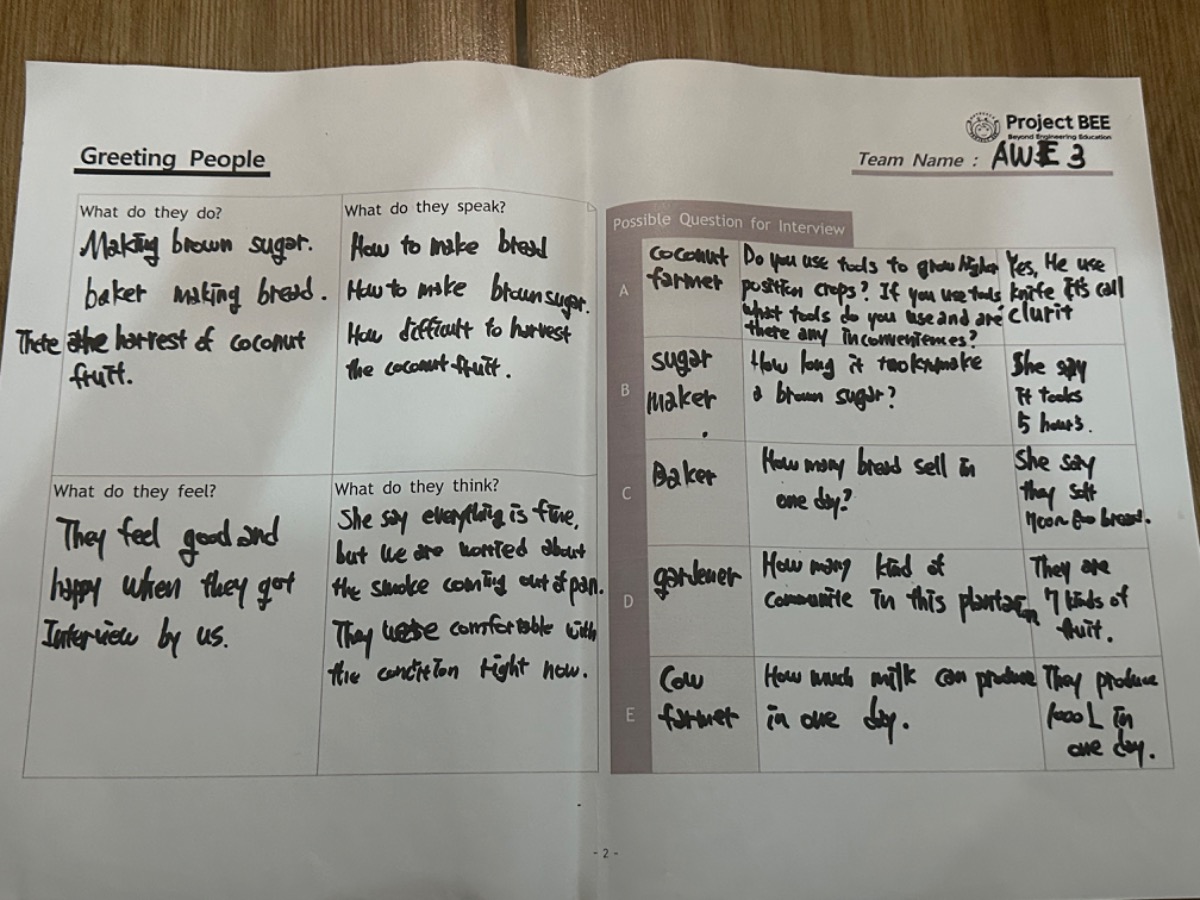 Project BEE
Beyond Engineering Education
Greeting People
Team Name : AWE 3
What do they do?
Making brown sugar.
baker making bread.
There are harvest of coconut
fruit.
What do they speak?
How to make bread
How to make brown sugar.
How difficult to harvest
the coconut fruit.
What do they feel?
They feel good and
happy when they got
Interview by us.
What do they think?
She say everything is fine,
but we are worried about
the smoke coming out of pan.
They were comfortable with
the condition right now.
Possible Question for Interview
A
coconut
farmer
Do you use tools to grow higher
position crops? If you use tools
what tools do you use and are
there any inconveniences?
Yes, He use
knife it's call
clurit
B
sugar
maker.
How long it took to make
a brown sugar?
She say
it tooks
5 hours.
C
Baker
How many bread sell in
one day?
She say
they
bread.
D
gardener
How many kind of
in this
They are
7 kinds of
fruit.
E
Cow
farmer
How much milk can produce
in one day.
They produce
1000 L in
one day.
- 2 -